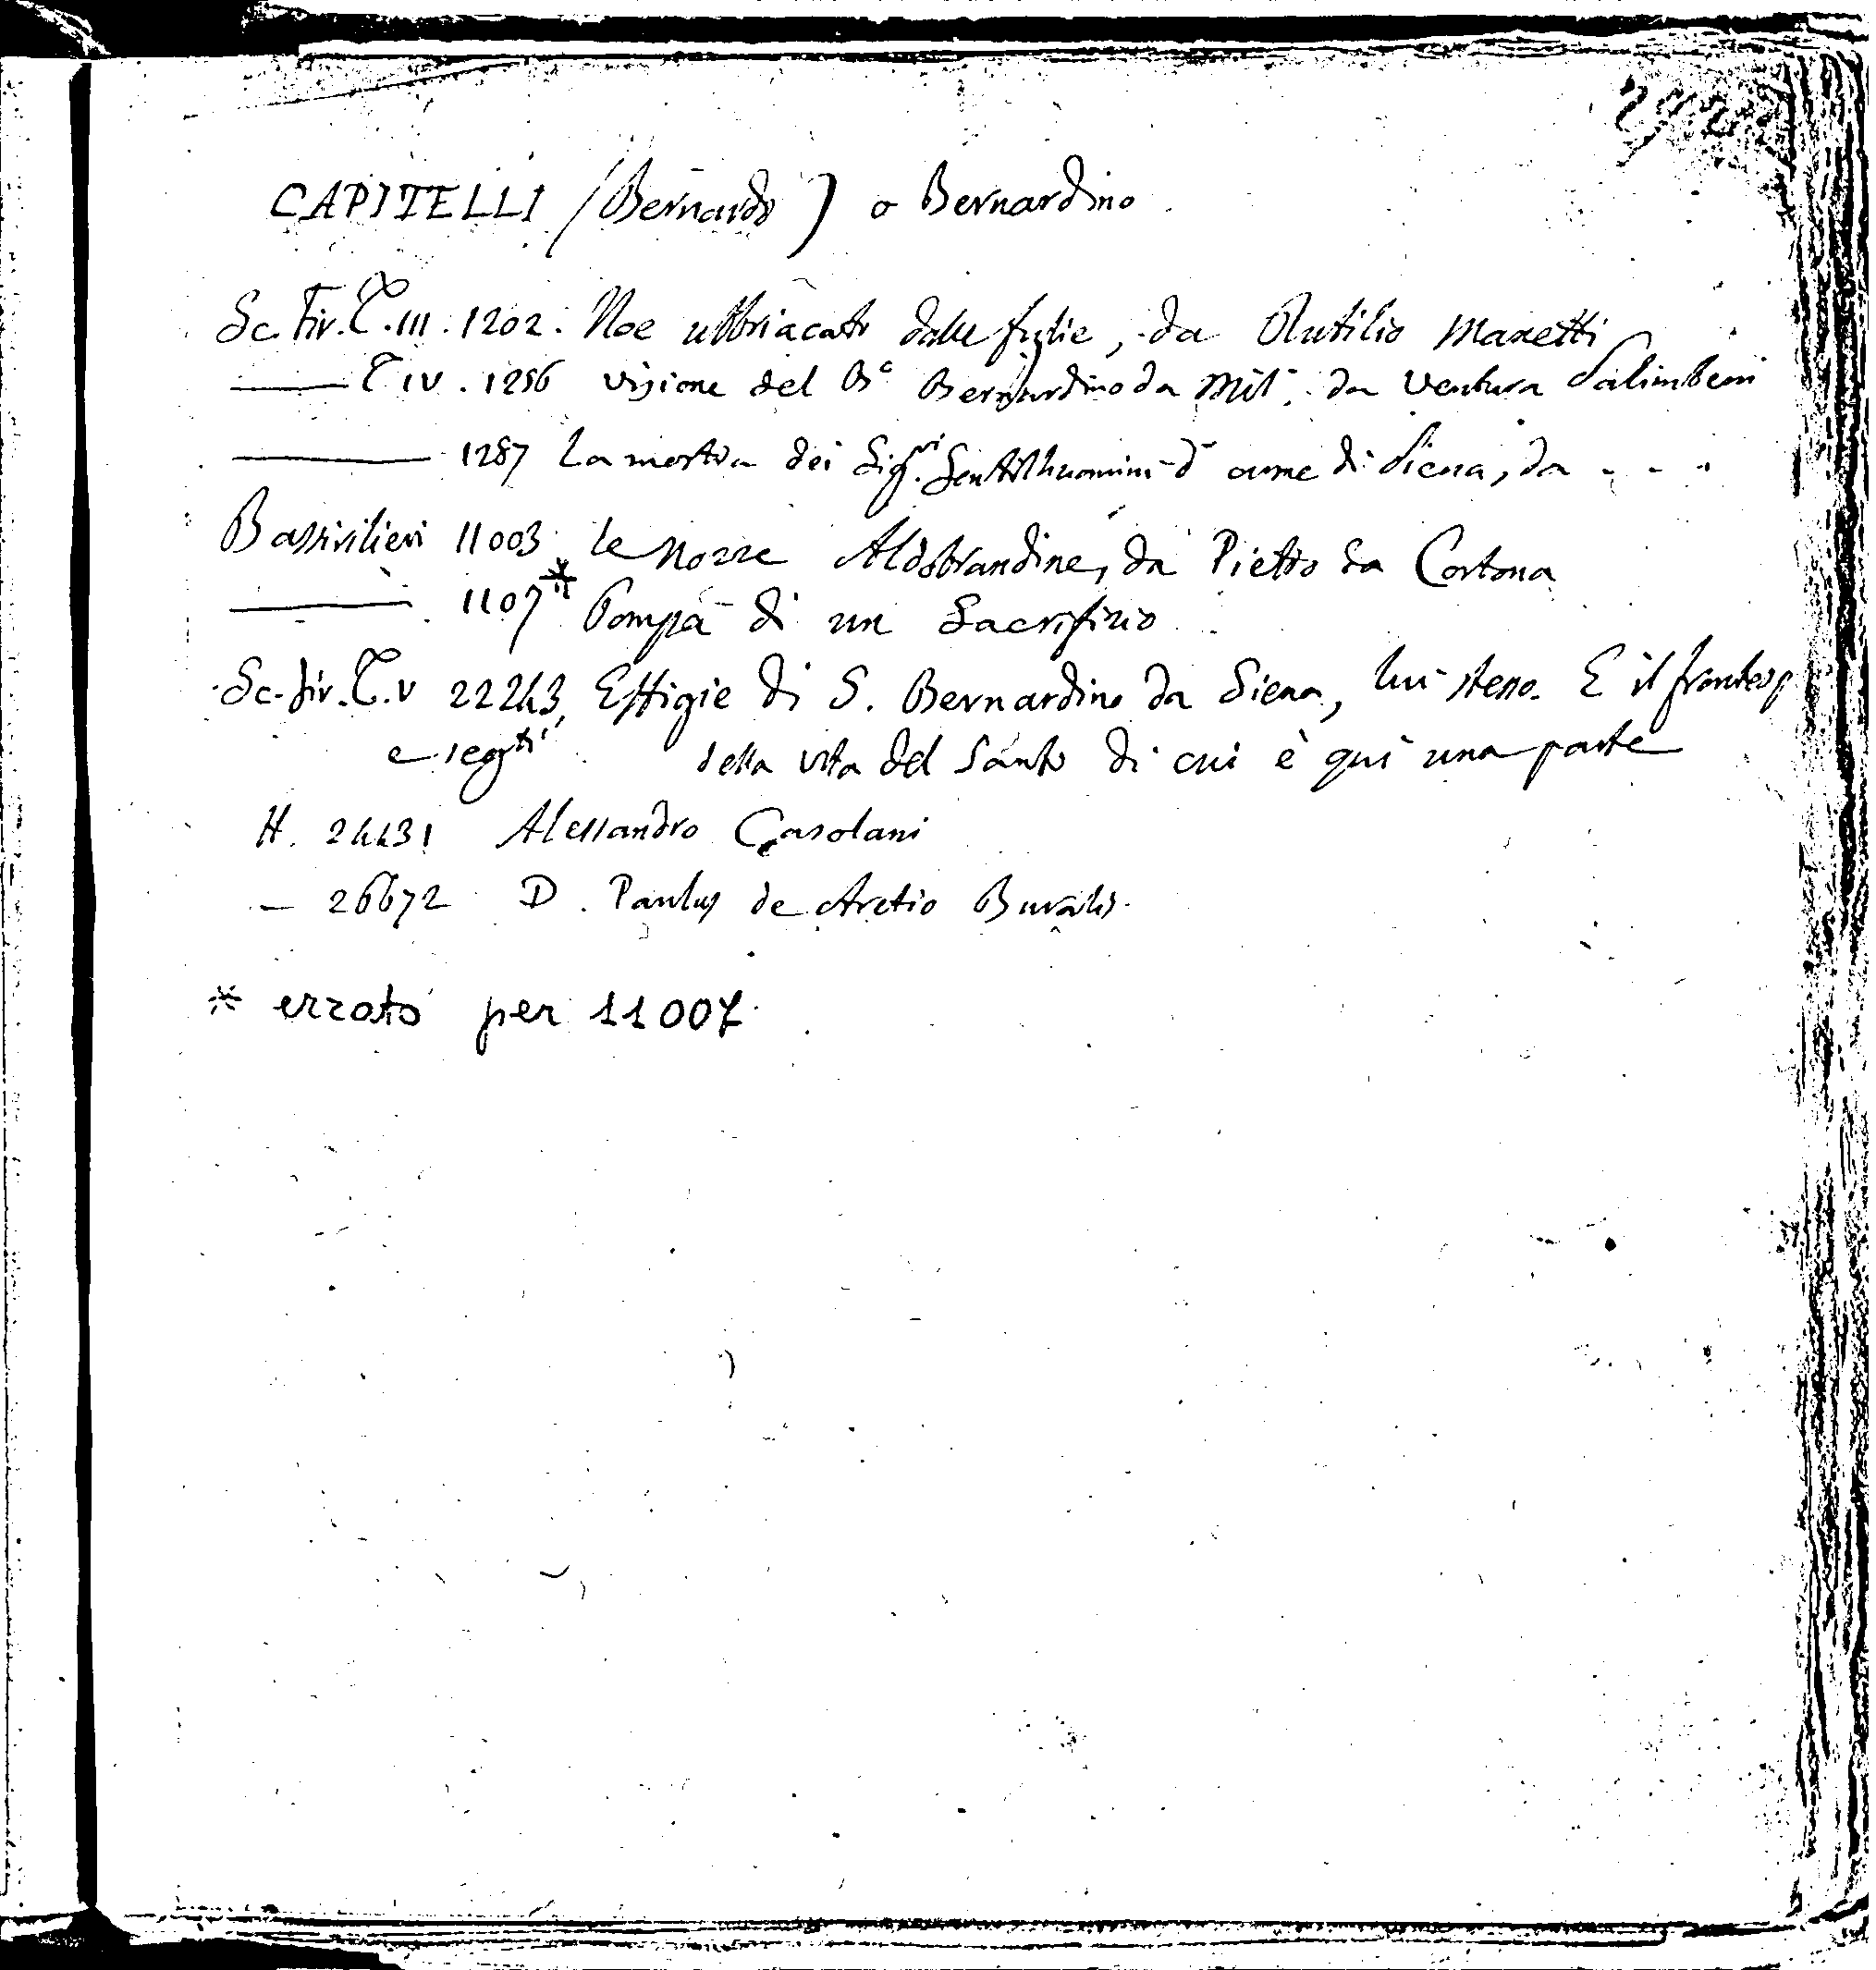 CAPITELLI (Bernardo) o Bernardino
Sc. Fir. T. III. 1202. Noe ubbriacato dalle figlie, da Rutilio Manetti
——— T IV. 1286 visione del Bº Bernardino da da Ventura Salimbeni
——— 1287 La mostra dei Sigri Gentilhuomini d'arme di Siena, da . . .
11003 Le Nozze Aldobrandine, da Pietro da Cortona
——— 1107* Pompa di un Sacrifizio
Sc. fir. T. V 22243, Effigie di S. Bernardino da Siena, lui stesso. E il frontesp
e segti della vita del Santo di cui è qui una parte
H. 24431 Alessandro Casolani
— 26672 D. Paulus de Aretio Buralis
* errato per 11007